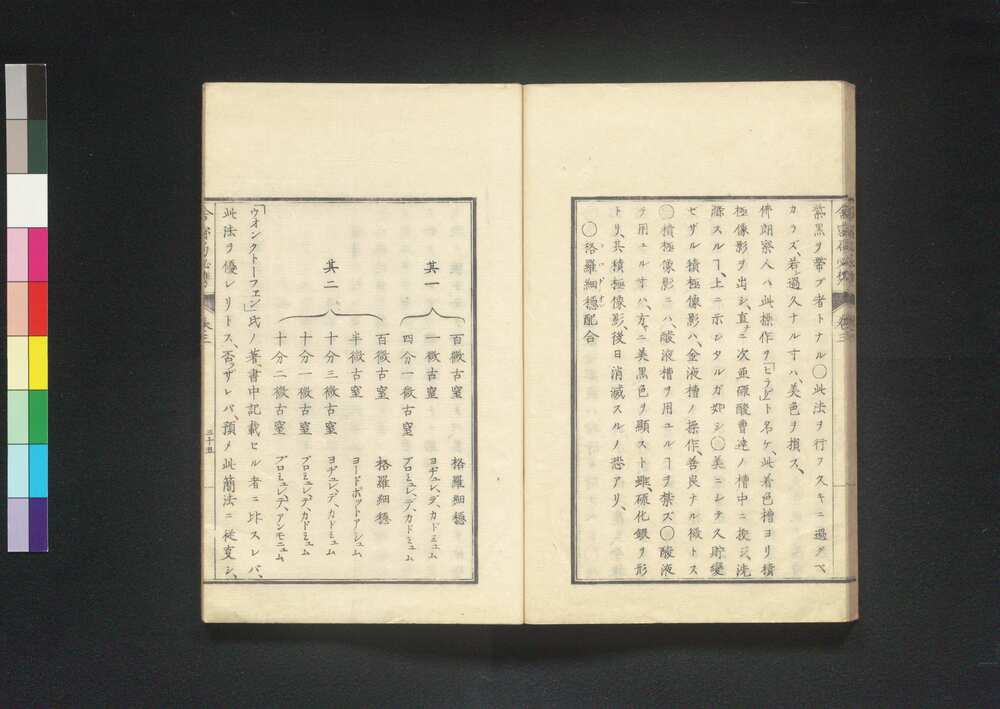 紫黒ヲ帶ブ者トナル◯此法ヲ行フスキニ過グベ
カラズ、若シ過久ナル寸ハ、美色ヲ損ス、
佛朗察人ハ此操作ヲ「ヒラージ」ト名ケ、此着色槽ヨリ積
極像影ヲ出シ、直ニ次亜硫酸曹達ノ槽中ニ投ジ、洗
滌スルヿ、上ニ示シタルガ如シ◯美ニシテ久貯變
ゼザル積極像影ハ、金液槽ノ操作、善良ナル徴トス
◯積極像影ニハ、酸液槽ヲ用ユルヿヲ禁ズ◯酸液
ヲ用ユル寸ハ、方ニ美黒色ヲ顯スト雖、硫化銀ヲ形
トリ、其積極像影、後日消滅スルノ恐アリ、
◯格羅細穏配合
其一
百微古窒 格羅細穏
一微古窒 ヨヂュレ、デ、カドミュム
四分一微古窒 ブロミュレ、デ、カドミュム
其二
百微古窒 格羅細穏
半微古窒 ヨードポットアシュム
十分三微古窒 ヨヂュレ、デ、カドミュム
十分一微古窒 ブロミュレ、デ、カドミュム
十分二微古窒 ブロミュレ、デ、アンモニュム
「ウオンクトーフェン」氏ノ著、書中記載セル者ニ比スレバ、
此法ヲ優レリトス、否ザレバ、預メ此簡法ニ從事シ、
卷三
三十五